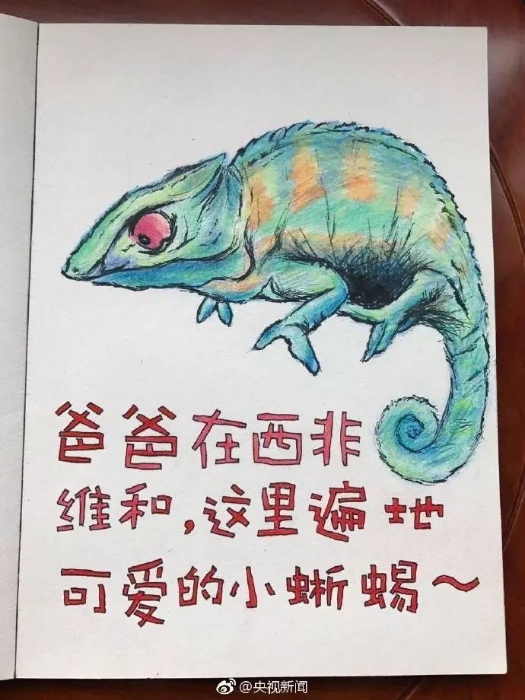 爸爸在西非
维和,这里遍地
可爱的小蜥蜴~
@央视新闻